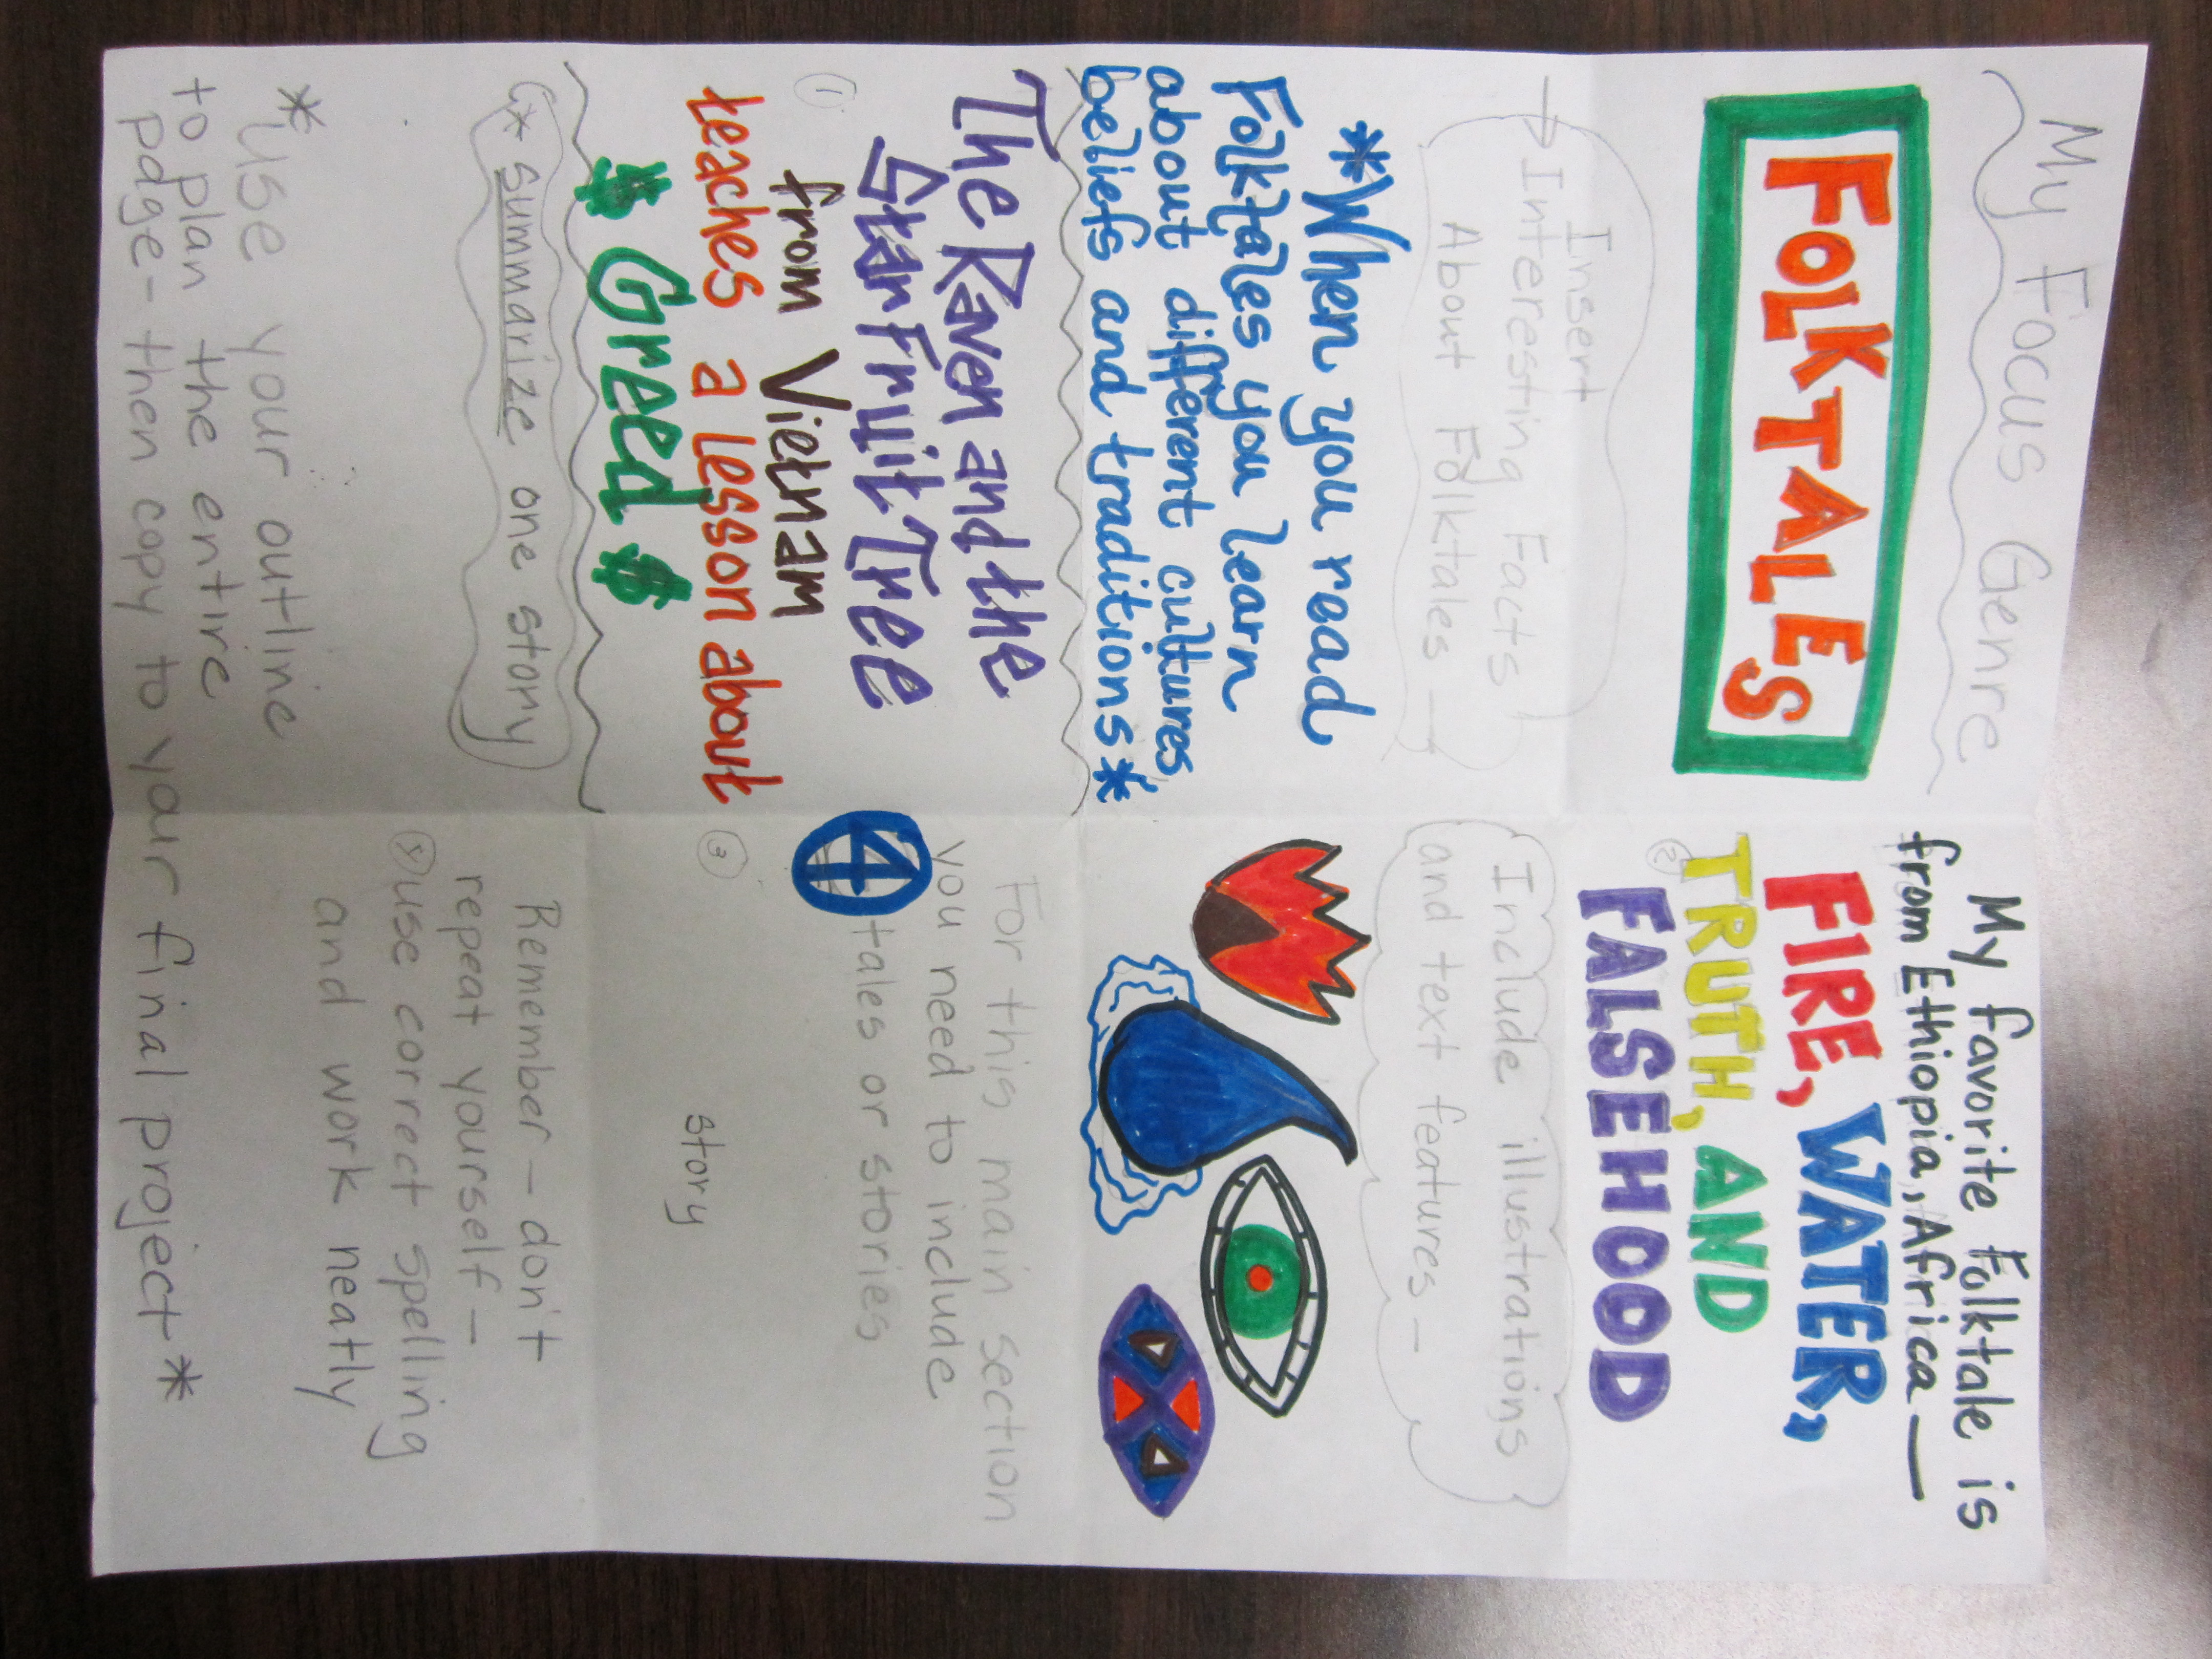 My Focus Genre
FOLKTALES
Insert
→ Interesting Facts
About Folktales —
*When you read
Folktales you learn
about different cultures,
beliefs and traditions*
The Raven and the
Star Fruit Tree
from Vietnam
①
teaches a lesson about
$ Greed $
* summarize one story
*Use your outline
to plan the entire
page- then copy to your final project*
My favorite Folktale is
from Ethiopia, Africa —
FIRE, WATER,
② TRUTH, AND
FALSEHOOD
Include illustrations
and text features —
For this main section
you need to include
④ tales or stories
③
story
Remember - don't
repeat yourself -
use correct spelling
and work neatly